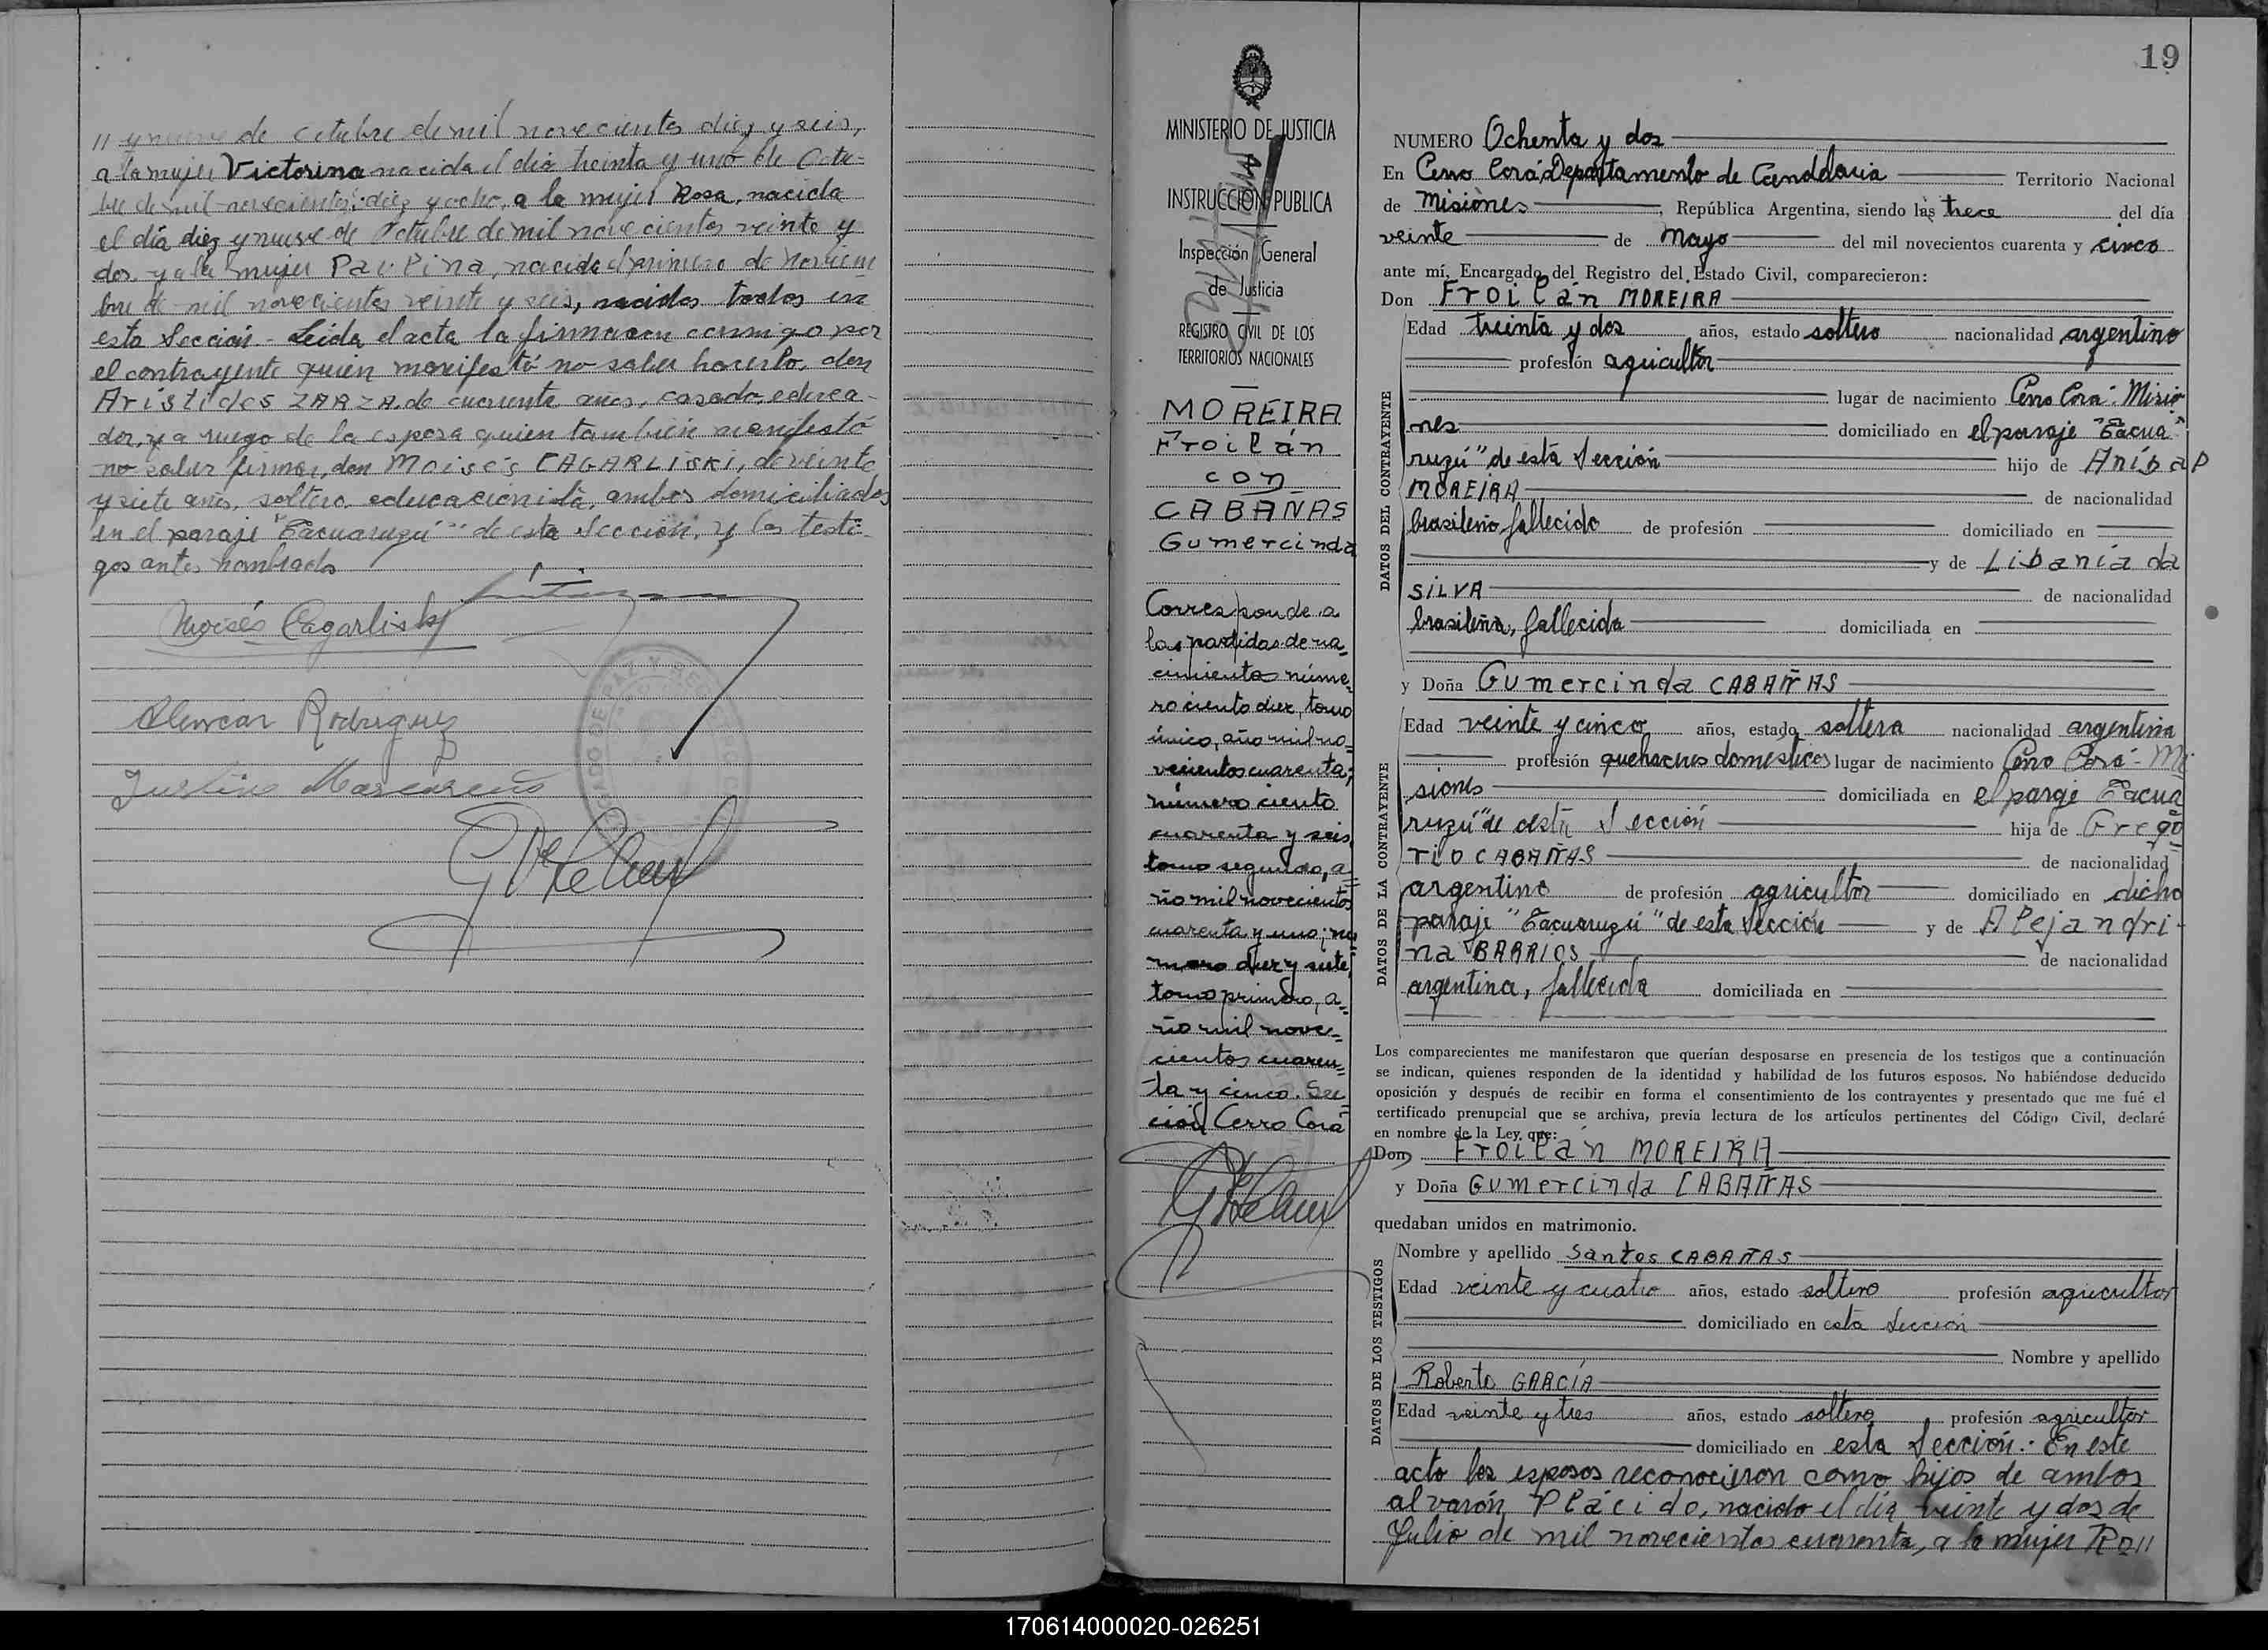 // y nueve de octubre de mil novecientos diez y seis,
a la mujer Victorina nacida el día treinta y uno de Octu-
bre de mil novecientos diez y ocho, a la mujer Rosa, nacida
el día diez y nueve de Octubre de mil novecientos veinte y
dos, y a la mujer Paulina, nacida el primero de Noviem
bre de mil novecientos veinte y seis, nacidos todos en
esta Sección.- Leída el acta la firmaron conmigo por
el contrayente quien manifestó no saber hacerlo, don
Arístides ZARZA, de cuarenta años, casado, educa-
dor, y a ruego de la esposa quien también manifestó
no saber firmar, don Moisés CAGARLISKI, de veinte
y siete años, soltero, educacionista, ambos domiciliados
en el paraje "Tacuaruzú" de esta Sección, y los testi-
gos antes nombrados
Moisés Cagarlisky
Alencar Rodriguez
Justino Mascareno
19
MINISTERIO DE JUSTICIA
INSTRUCCION PUBLICA
Inspección General
de Justicia
REGISTRO CIVIL DE LOS
TERRITORIOS NACIONALES
MOREIRA
Froilán
con
CABAÑAS
Gumercinda
Corresponde a
las partidas de na=
cimientos núme=
ro ciento diez, tomo
único, año mil no=
vecientos cuarenta;
número ciento
cuarenta y seis
tomo segundo, a=
ño mil novecientos
cuarenta y uno; nú
mero diez y siete,
tomo primero, a=
ño mil nove=
cientos cuaren=
ta y cinco. Sec=
ción Cerro Corá
NUMERO Ochenta y dos
En Cerro Corá Departamento de Candelaria Territorio Nacional
de Misiones, República Argentina, siendo las trece del día
veinte de Mayo del mil novecientos cuarenta y cinco
ante mí, Encargado del Registro del Estado Civil, comparecieron:
Don Froilán MOREIRA
DATOS DEL CONTRAYENTE
Edad treinta y dos años, estado soltero nacionalidad argentino
profesión agricultor
lugar de nacimiento Cerro Corá - Misio
nes domiciliado en el paraje "Tacua-
ruzú" de esta Sección hijo de Aníbal
MOREIRA de nacionalidad
brasileño fallecido de profesión domiciliado en
y de Libania da
SILVA de nacionalidad
brasileña, fallecida domiciliada en
y Doña Gumercinda CABAÑAS
DATOS DE LA CONTRAYENTE
Edad veinte y cinco años, estado soltera nacionalidad argentina
profesión quehaceres domesticos lugar de nacimiento Cerro Corá - Mi
siones domiciliada en el parge Tacua
ruzú" de esta Sección hija de Grego
rio CABAÑAS de nacionalidad
argentino de profesión agricultor domiciliado en dicho
paraje "Tacuaruzú" de esta Sección y de Alejandri-
na BARRIOS de nacionalidad
argentina, fallecida domiciliada en
Los comparecientes me manifestaron que querían desposarse en presencia de los testigos que a continuación
se indican, quienes responden de la identidad y habilidad de los futuros esposos. No habiéndose deducido
oposición y después de recibir en forma el consentimiento de los contrayentes y presentado que me fué el
certificado prenupcial que se archiva, previa lectura de los artículos pertinentes del Código Civil, declaré
en nombre de la Ley, que:
Don Froilán MOREIRA
y Doña Gumercinda CABAÑAS
quedaban unidos en matrimonio.
DATOS DE LOS TESTIGOS
Nombre y apellido Santos CABAÑAS
Edad veinte y cuatro años, estado soltero profesión agricultor
domiciliado en esta Sección
Nombre y apellido
Roberto GARCÍA
Edad veinte y tres años, estado soltero profesión agricultor
domiciliado en esta Sección.- En este
acto los esposos reconocieron como hijos de ambos
al varón Plácido, nacido el día veinte y dos de
Julio de mil novecientos cuarenta, a la mujer Ra//
170614000020-026251